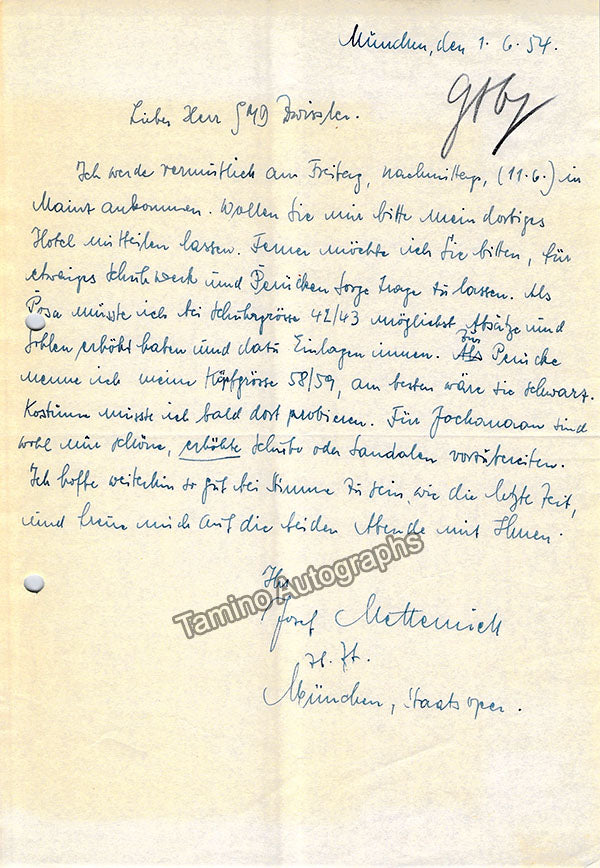 München, den 1.6.54.
Lieber Herr GMD Zwissler.
Ich werde vermutlich am Freitag, nachmittags, (11.6.) in
Mainz ankommen. Wollen Sie mir bitte mein dortiges
Hotel mitteilen lassen. Ferner möchte ich Sie bitten, für
etwaiges Schuhwerk und Perücken Sorge tragen zu lassen. Als
Posa müsste ich bei Schuhgrösse 42/43 möglichst Absätze und
Sohlen erhöht haben und dazu Einlagen innen. Zur Perücke
nenne ich meine Kopfgrösse 58/59, am besten wäre sie schwarz.
Kostüme müsste ich bald dort probieren. Für Jochanaan sind
wohl nur schöne, erhöhte Schuhe oder Sandalen vorzubereiten.
Ich hoffe weiterhin so gut bei Stimme zu sein, wie die letzte Zeit,
und freue mich auf die beiden Abende mit Ihnen.
Ihr
Josef Metternich
z. Zt.
München, Staatsoper.
Tamino Autographs